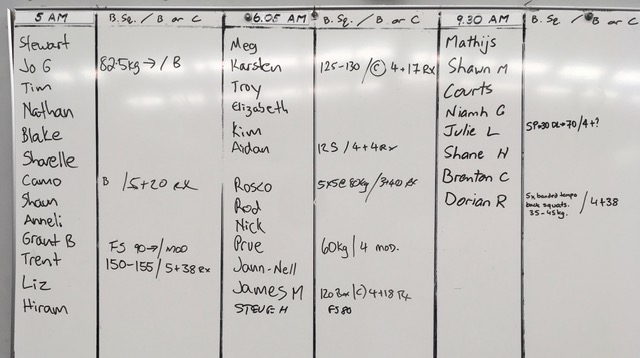 5 AM B.Sq. / B or C 6.05 AM B.Sq. / B or C 9.30 AM B.Sq. / B or C
Stewart Meg Mathijs
Jo G 82.5kg → / B Karsten 125-130 / C 4+17 Rx Shawn M
Tim Troy Courts
Nathan Elizabeth Niamh G
Blake Kim Julie L SP→30 DL→70/4+?
Sharelle Aidan 125 / 4+4 Rx Shane H
Camo B / 5+20 RX Rosco 5x5@80kg / Brenton C
Shaun Rod Dorian R 5x banded tempo back squats. 35-45kg. / 4+38
Anneli Nick
Grant B FS 90→/MOD Prue 60kg / 4 mod.
Trent 150-155 / 5+38 Rx Jann-Nell
Liz James M 120 / (C) 4+18 Rx
Hiram STEVE H FS80